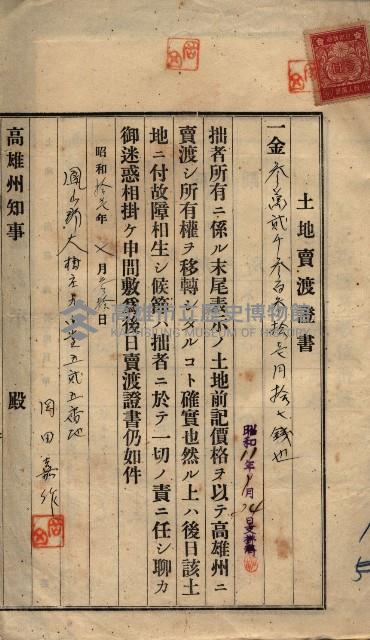 土地賣渡證書
一金參萬貳千參百參拾壱円拾七錢也
昭和11年 月24日支拂濟
拙者所有ニ係ル末尾表示ノ土地前記價格ヲ以テ高雄州ニ
賣渡シ所有權ヲ移轉シタルコト確實也然ル上ハ後日該土
地ニ付故障相生シ候節ハ拙者ニ於テ一切ノ責ニ任シ聊カ
御迷惑相掛ケ申間敷爲後日賣渡證書仍如件
昭和拾壱年 月參拾日
鳳山郡大樹庄 堂五貳五番地
岡田嘉作
高雄州知事 殿
高雄市立歷史博物館
KAOHSIUNG MUSEUM OF HISTORY